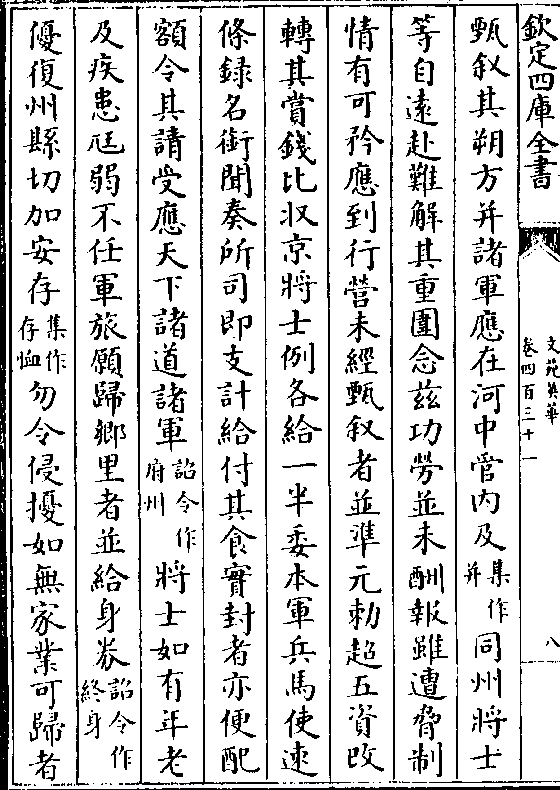 欽定四庫全書
文苑英華
卷四百三十一
八
甄叙其朔方并諸軍應在河中管内及集作并同州將士
等自遠赴難解其重圍念兹功勞並未酬報雖遭脅制
情有可矜應到行營未經甄叙者並準元勅超五資改
轉其賞錢比収京將士例各給一半委本軍兵馬使速
條録名銜聞奏所司即支計給付其食實封者亦便配
額令其請受應天下諸道諸軍詔令作府州將士如有年老
及疾患尫弱不任軍旅願歸鄉里者並給身券詔令作終身
優復州縣切加安存集作存恤勿令侵擾如無家業可歸者